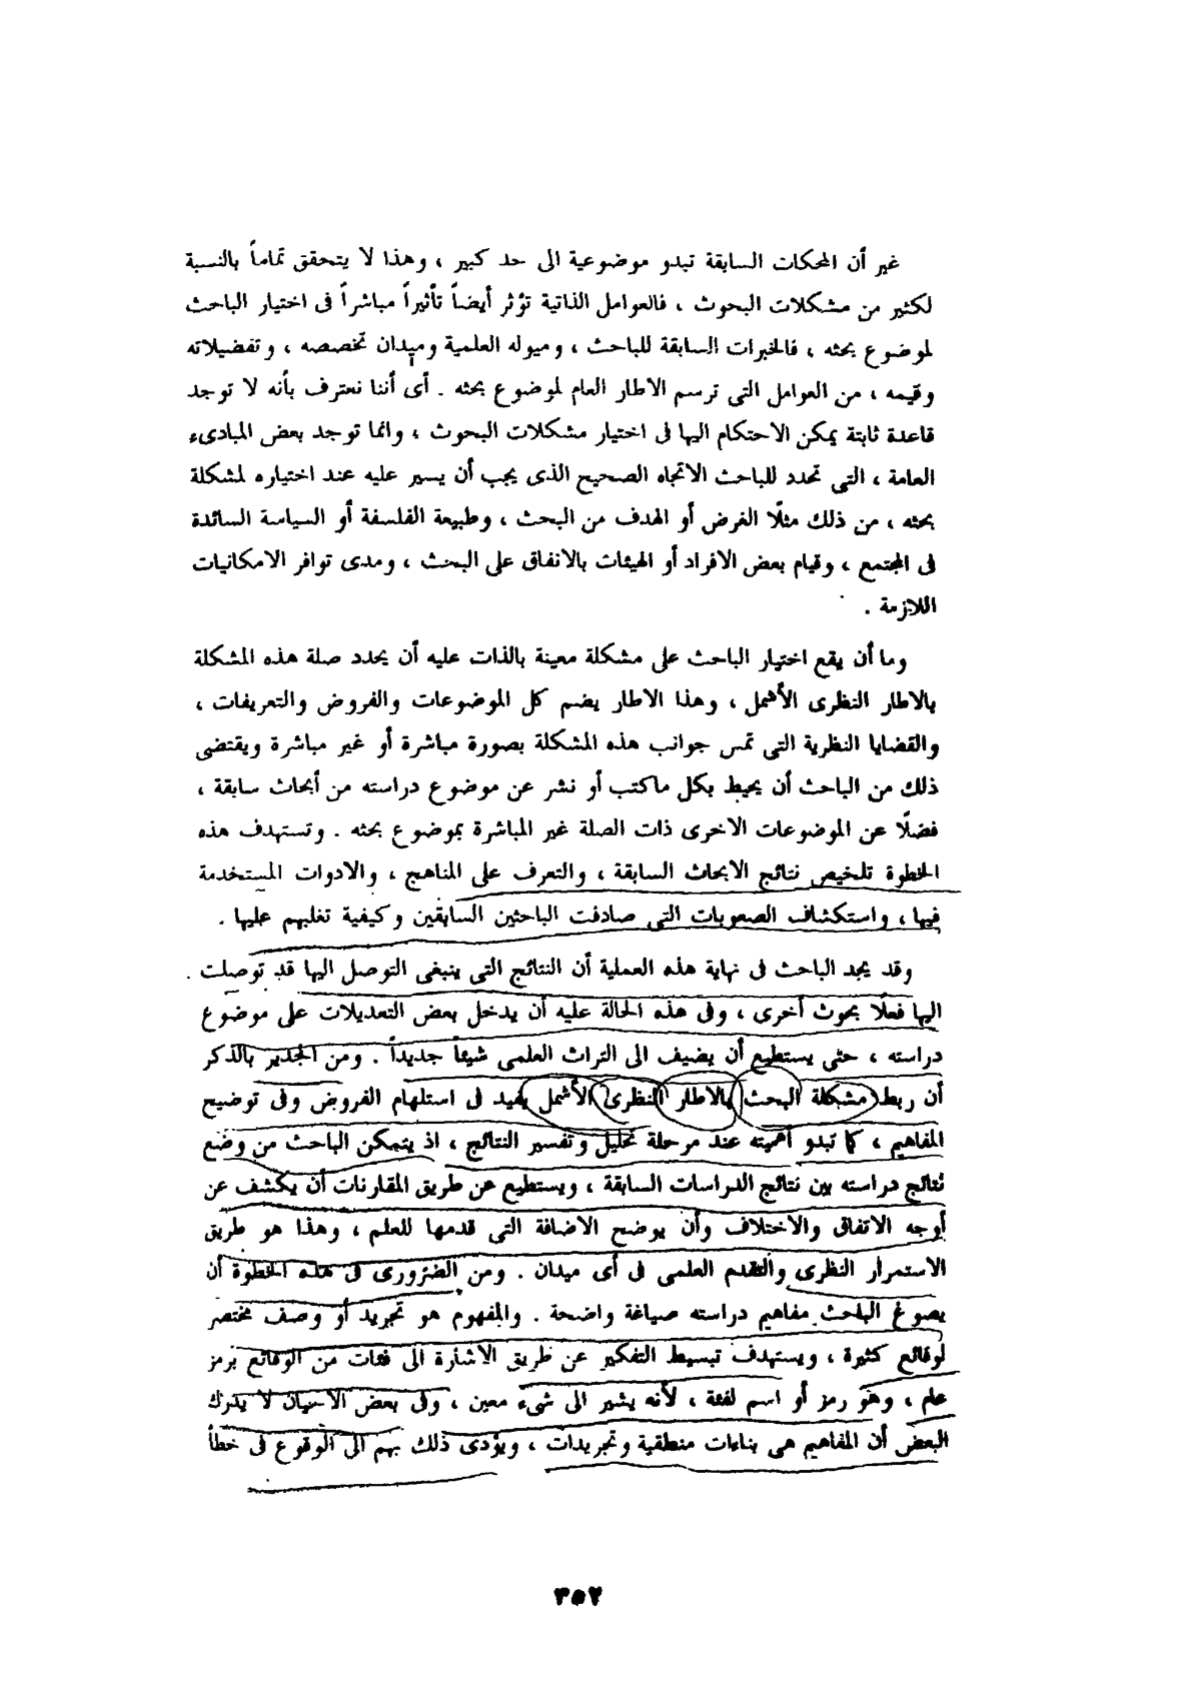 غير أن المحكات السابقة تبدو موضوعية الى حد كبير ، وهذا لا يتحقق تماماً بالنسبة
لكثير من مشكلات البحوث ، فالعوامل الذاتية تؤثر أيضاً تأثيراً مباشراً فى اختيار الباحث
لموضوع بحثه ، فالخبرات السابقة للباحث ، وميوله العلمية وميدان تخصصه ، وتفضيلاته
وقيمه ، من العوامل التى ترسم الاطار العام لموضوع بحثه . أى أننا نعترف بأنه لا توجد
قاعدة ثابتة يمكن الاحتكام اليها فى اختيار مشكلات البحوث ، وانما توجد بعض المبادىء
العامة ، التى تحدد للباحث الاتجاه الصحيح الذى يجب أن يسير عليه عند اختياره لمشكلة
بحثه ، من ذلك مثلًا الغرض أو الهدف من البحث ، وطبيعة الفلسفة أو السياسة السائدة
فى المجتمع ، وقيام بعض الافراد أو الهيئات بالانفاق على البحث ، ومدى توافر الامكانيات
اللازمة .
وما أن يقع اختيار الباحث على مشكلة معينة بالذات عليه أن يحدد صلة هذه المشكلة
بالاطار النظرى الأشمل ، وهذا الاطار يضم كل الموضوعات والفروض والتعريفات ،
والقضايا النظرية التى تمس جوانب هذه المشكلة بصورة مباشرة أو غير مباشرة ويقتضى
ذلك من الباحث أن يحيط بكل ماكتب أو نشر عن موضوع دراسته من أبحاث سابقة ،
فضلًا عن الموضوعات الاخرى ذات الصلة غير المباشرة بموضوع بحثه . وتستهدف هذه
الخطوة تلخيص نتائج الابحاث السابقة ، والتعرف على المناهج ، والادوات المستخدمة
فيها ، واستكشاف الصعوبات التى صادفت الباحثين السابقين وكيفية تغلبهم عليها .
وقد يجد الباحث فى نهاية هذه العملية أن النتائج التى ينبغى التوصل اليها قد توصلت
اليها فعلًا بحوث أخرى ، وفى هذه الحالة عليه أن يدخل بعض التعديلات على موضوع
دراسته ، حتى يستطيع أن يضيف الى التراث العلمى شيئاً جديداً . ومن الجدير بالذكر
أن ربط مشكلة البحث بالاطار النظرى الأشمل يفيد فى استلهام الفروض وفى توضيح
المفاهيم ، كما تبدو أهميته عند مرحلة تحليل وتفسير النتائج ، اذ يتمكن الباحث من وضع
نتائج دراسته بين نتائج الدراسات السابقة ، ويستطيع عن طريق المقارنات أن يكشف عن
أوجه الاتفاق والاختلاف وأن يوضح الاضافة التى قدمها للعلم ، وهذا هو طريق
الاستمرار النظرى والتقدم العلمى فى أى ميدان . ومن الضرورى فى هذه الخطوة أن
يصوغ الباحث مفاهيم دراسته صياغة واضحة . والمفهوم هو تجريد أو وصف مختصر
لوقائع كثيرة ، ويستهدف تبسيط التفكير عن طريق الاشارة الى فئات من الوقائع برمز
عام ، وهو رمز أو اسم لفئة ، لأنه يشير الى شىء معين ، وفى بعض الاحيان لا يدرك
البعض أن المفاهيم هى بناءات منطقية وتجريدات ، ويؤدى ذلك بهم الى الوقوع فى خطأ
٣٥٢